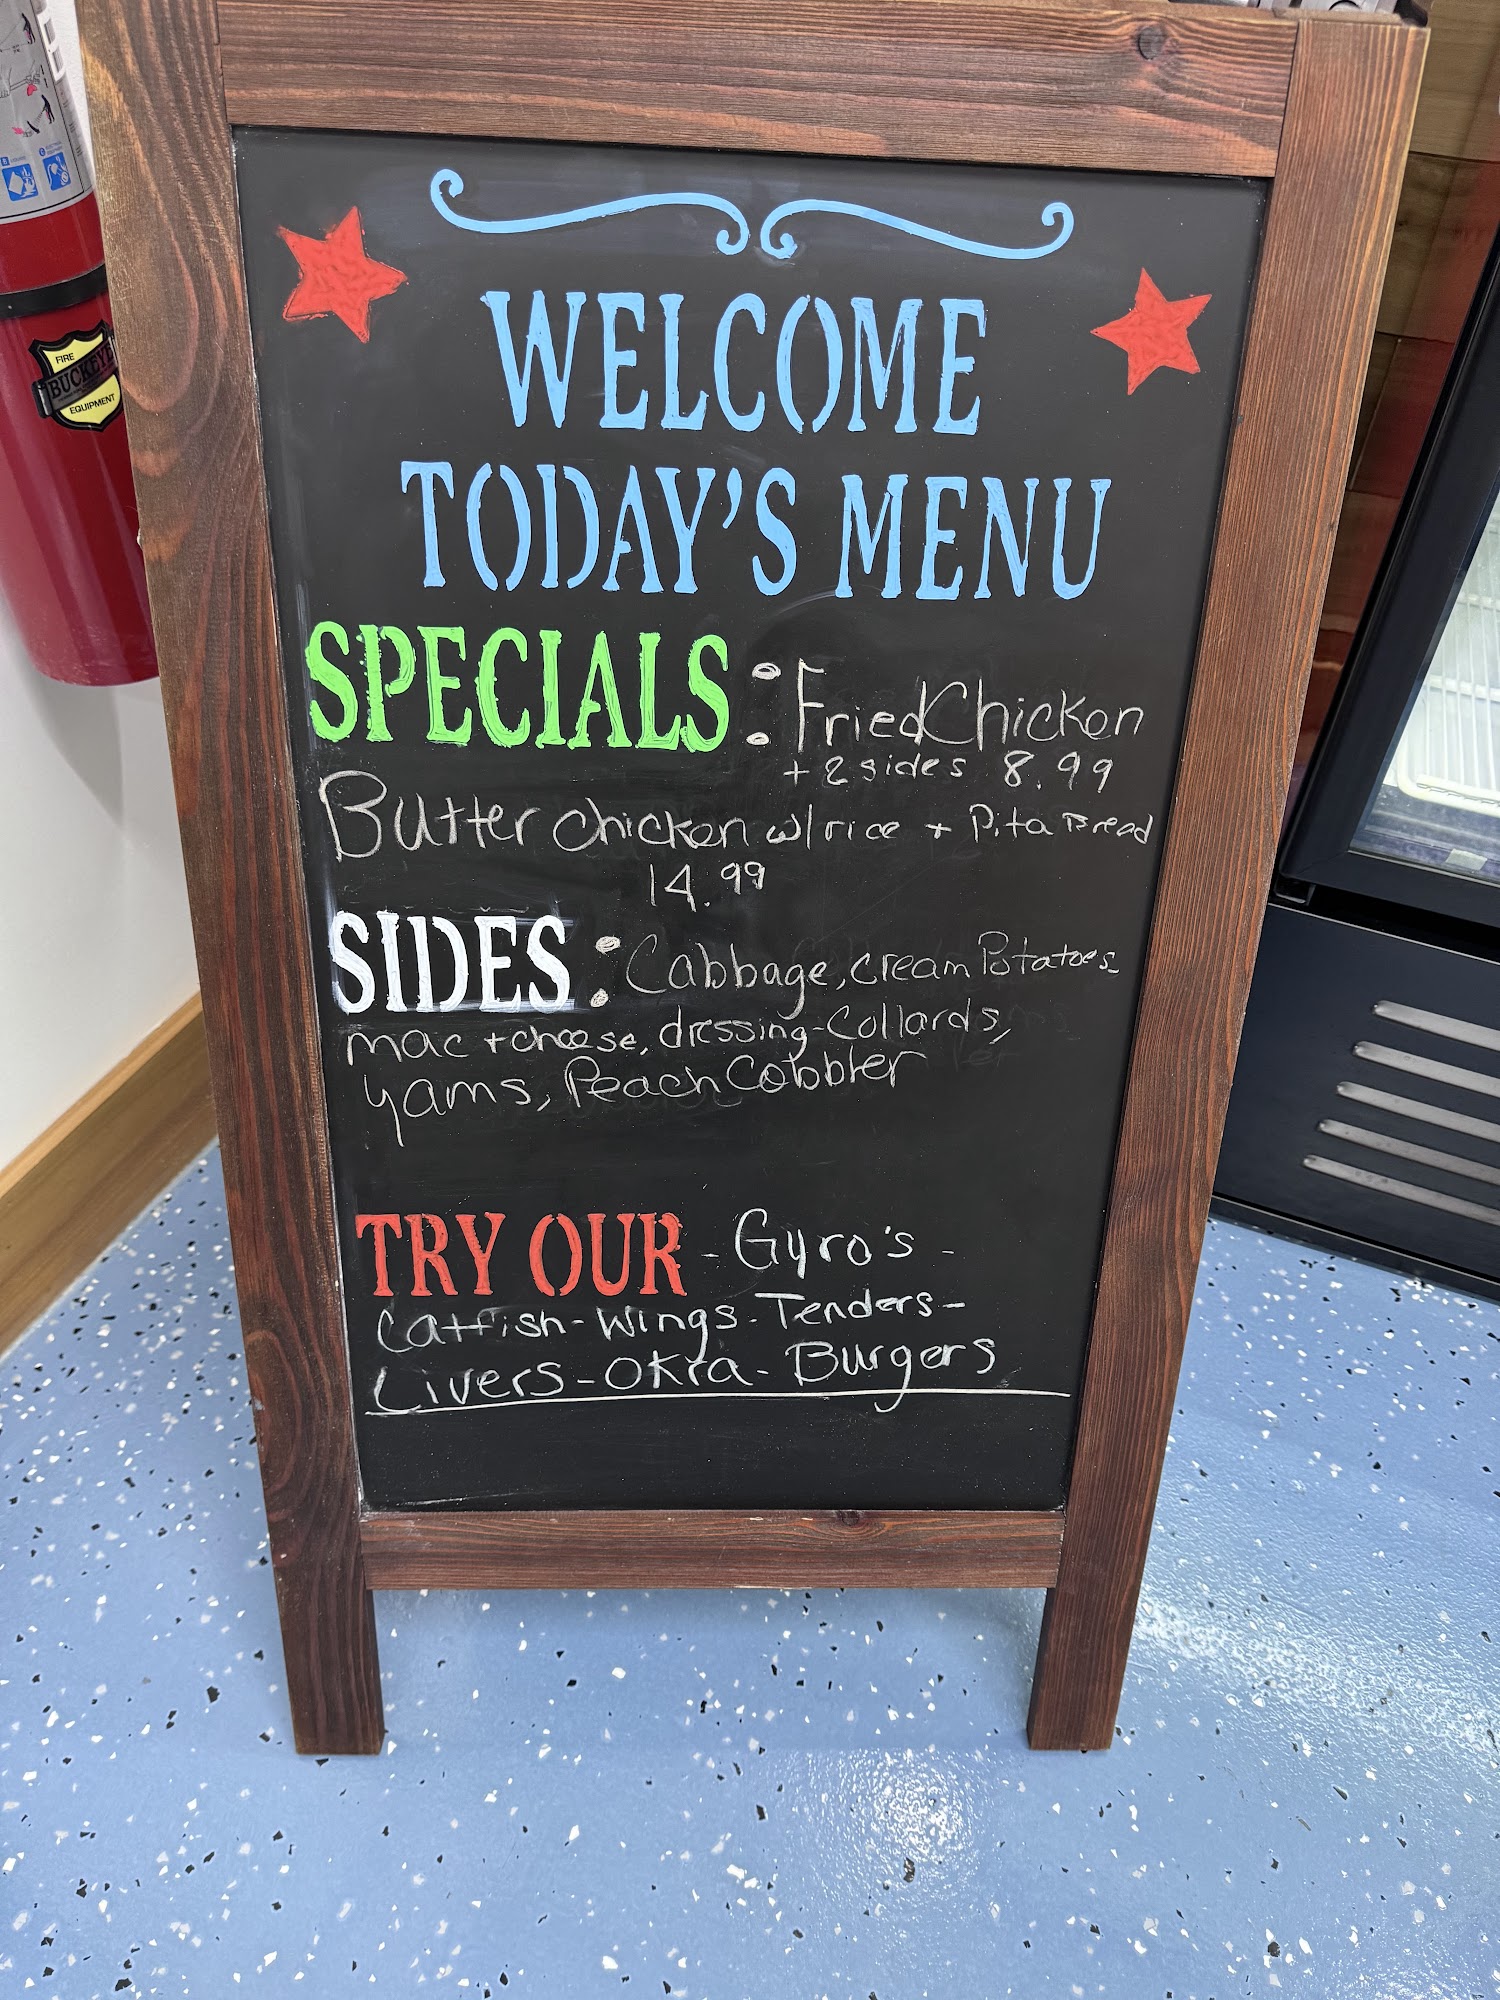 FIRE
BUCKEYE
EQUIPMENT
WELCOME
TODAY'S MENU
SPECIALS : Fried Chicken
+ 2 sides 8.99
Butter chicken w/ rice + Pita Bread
14.99
SIDES : Cabbage, cream Potatoes-
mac + cheese, dressing-Collards,
yams, Peach Cobbler
TRY OUR - Gyro's -
Catfish-Wings-Tenders-
Livers-OKra-Burgers